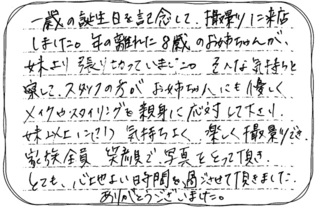 一歳の誕生日を記念して、撮影に来店
しました。年の離れた8歳のお姉ちゃんが、
妹より張り切っていました。そんな気持ちを
察して、スタッフの方がお姉ちゃんにも優しく
メイクやスタイリングを親身に応対して下さり、
妹以上に気持ちよく、楽しく撮影でき、
家族全員 笑顔で写真をとって頂き、
とても、心地よい時間を過ごさせて頂きました。
ありがとうございました。